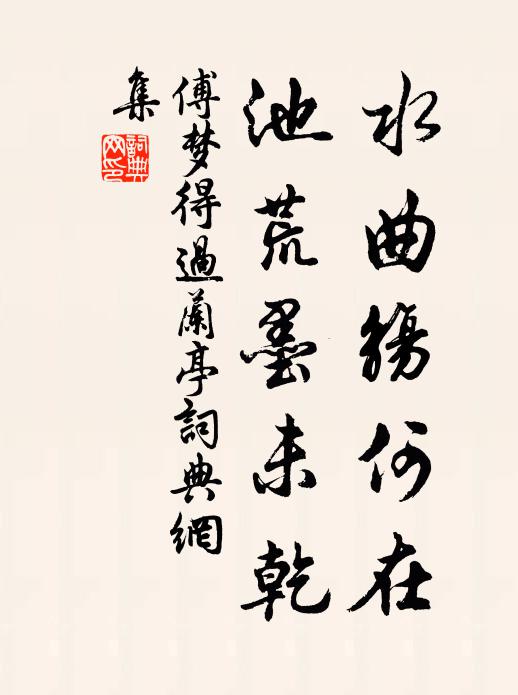 水曲觴何在
池荒墨未乾
傅梦得過蘭亭詞典網
集
詞典
网印